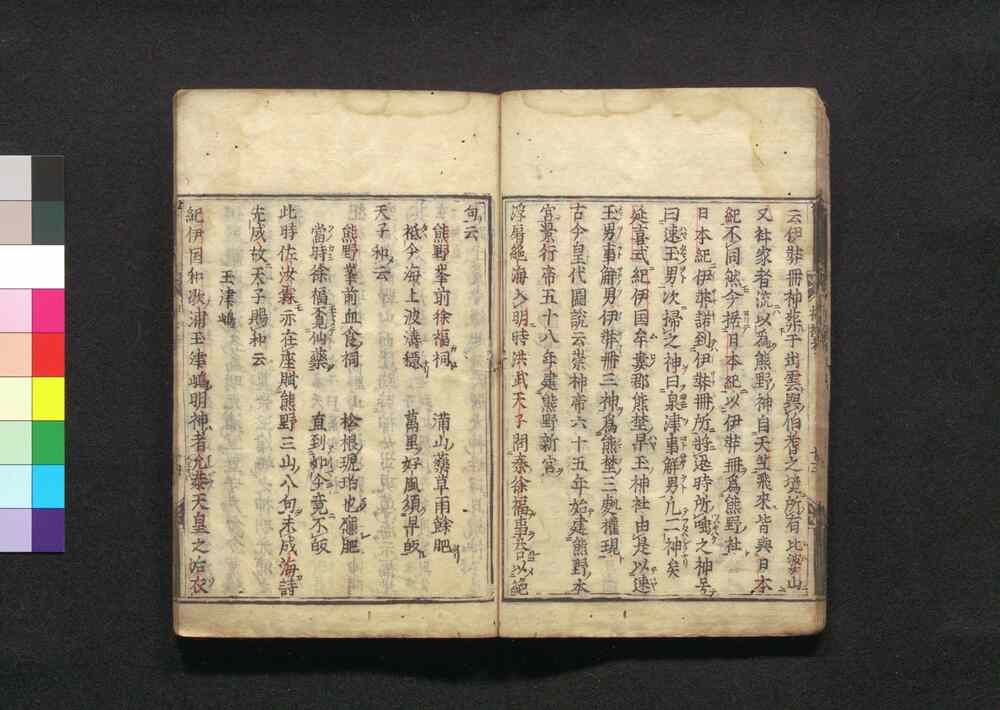 云伊弉冊神柴于出雲與伯耆之境所有比婆山
又社家者流以為熊野神自天竺飛來皆與日本
紀不同然今据日本紀以伊弉冊爲熊野社
日本紀伊弉諾到伊弉冊所將返時所唾之神号
曰速玉男次掃之神曰泉津事解男凢二神矣
延喜式紀伊国牟婁郡熊埜早玉神社由是以速
玉男事解男伊弉冊三神爲熊埜三處權現
古今皇代圖說云崇神帝六十五年始建熊野本
宮景行帝五十八年建熊野新宮
浮屠絕海入明時洪武天子問秦徐福事答以絕
句云
熊野峯前徐福祠 滿山藥草雨餘肥
祗今海上波濤穩 萬里好風須早皈
天子和云
熊野峯前血食祠 松根琥珀也應肥
當時徐福覓仙藥 直到如今竟不皈
此時佐汝霖亦在座賦熊野三山八句未成海詩
先成故天子賜和云
玉津嶋
紀伊国和歌浦玉津嶋明神者允恭天皇之后衣